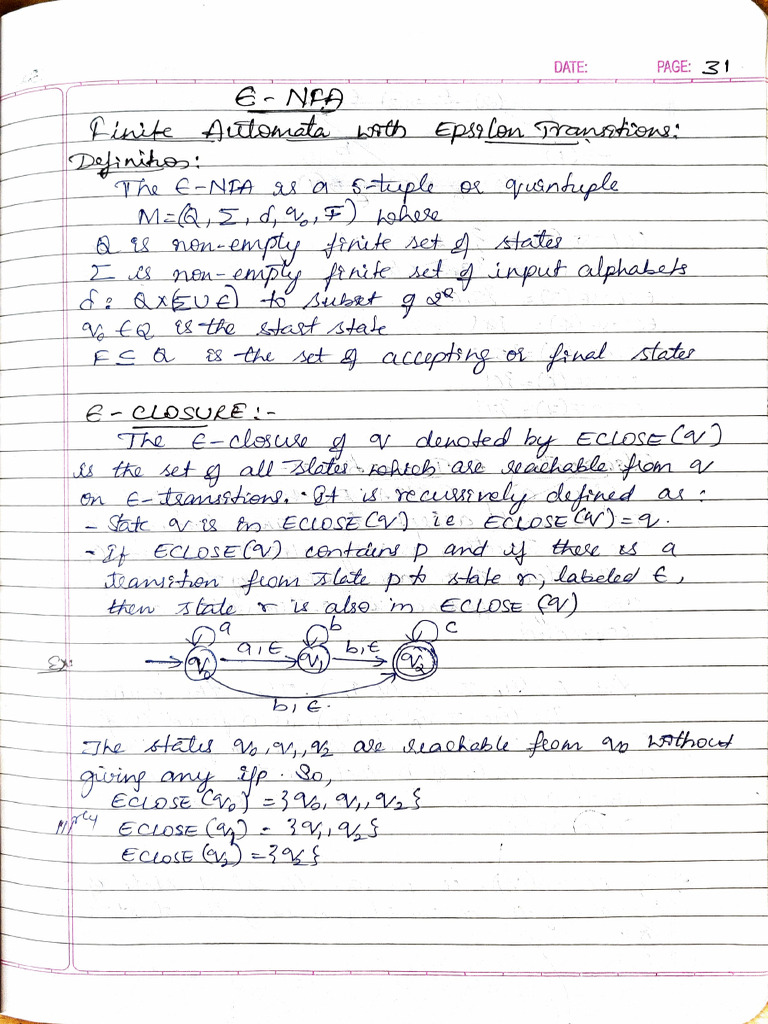 DATE: PAGE: 31
ϵ - NFA
Finite Automata with Epsilon Transitions:
Definition:
The ϵ-NFA is a 5-tuple or quintuple
M=(Q, Σ, δ, q₀, F) where
Q is non-empty finite set of states.
Σ is non-empty finite set of input alphabets
δ: Q×(Σ∪ϵ) to subset of 2^Q
q₀ ∈ Q is the start state
F ⊆ Q is the set of accepting or final states
ϵ - CLOSURE :-
The ϵ-closure of q denoted by ECLOSE(q)
is the set of all states which are reachable from q
on ϵ-transitions. It is recursively defined as :
- State q is in ECLOSE(q) ie ECLOSE(q) = q.
- If ECLOSE(q) contains p and if there is a
transition from state p to state r, labeled ϵ,
then state r is also in ECLOSE (q)
a b c
Ex: q₀ a, ϵ q₁ b, ϵ q₂
b, ϵ.
The states q₀, q₁, q₂ are reachable from q₀ without
giving any i/p. So,
ECLOSE (q₀) = {q₀, q₁, q₂}
|||ly ECLOSE (q₁) = {q₁, q₂}
ECLOSE (q₂) = {q₂}